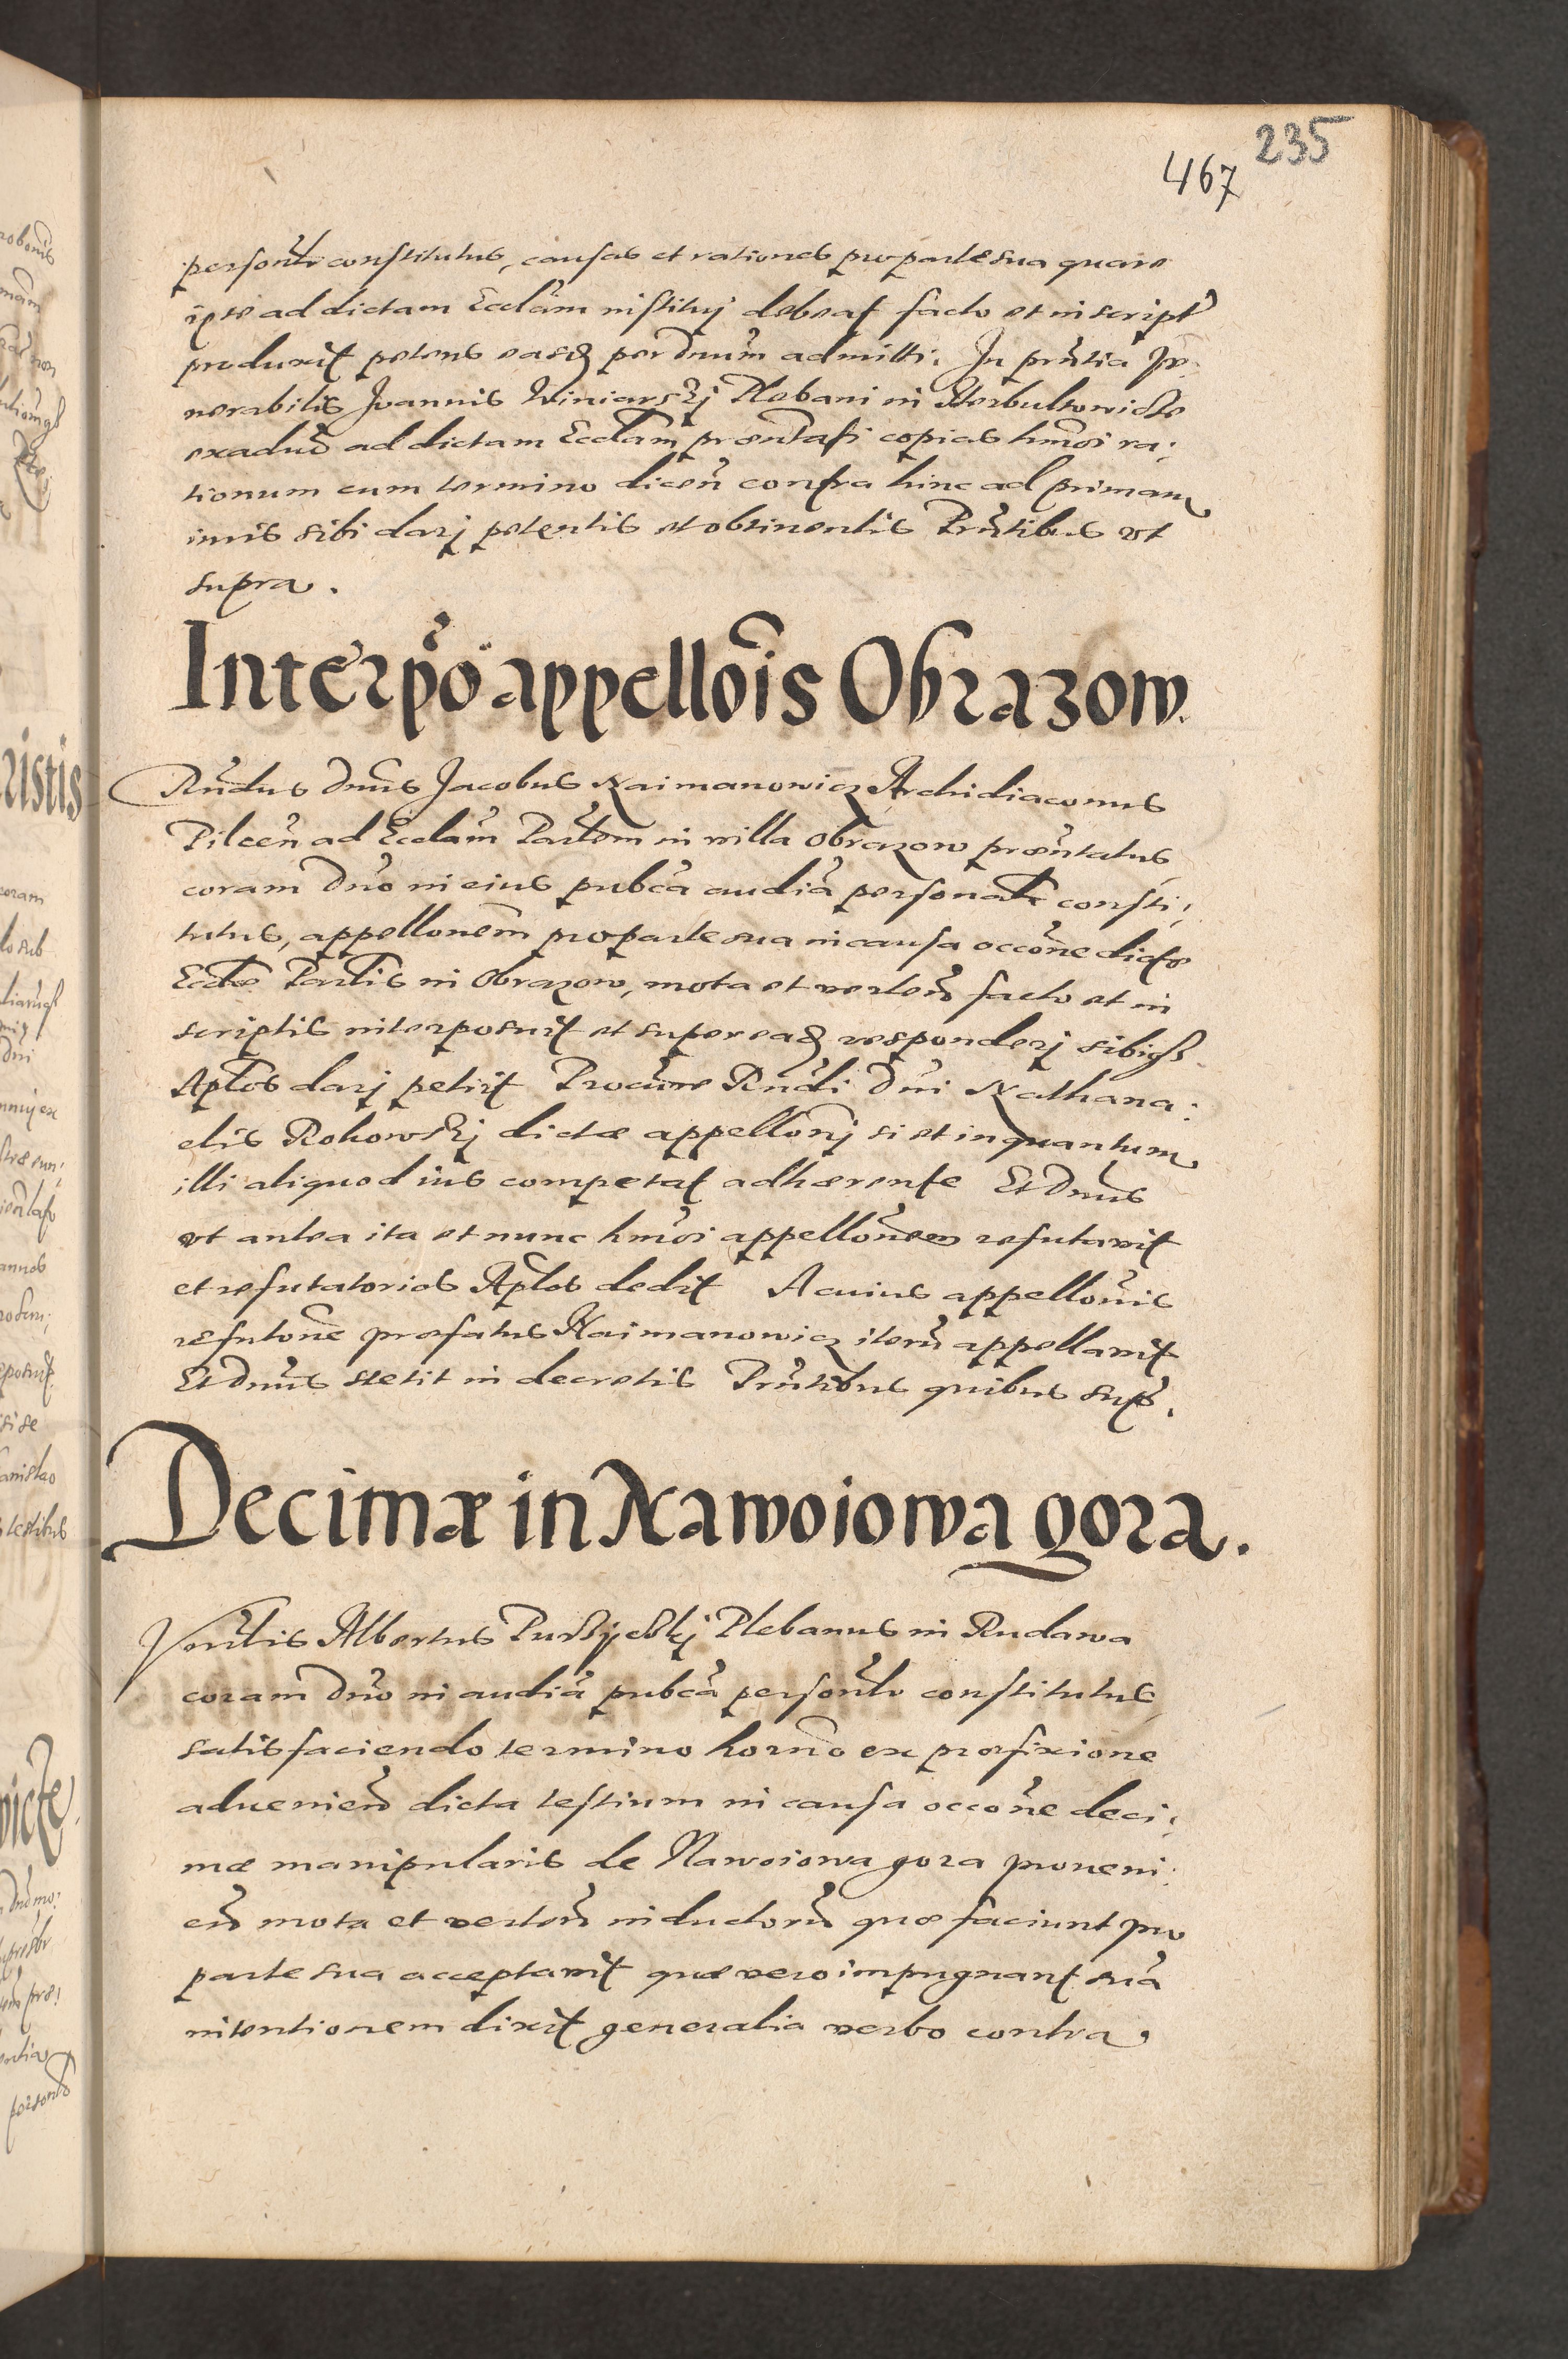 235
467
personlr constitutus, causas et rationes pro parte sua quare
ipse ad dictam Ecclam institui debeat facto et in script
produxit petens easq per dnum admitti. In prntia Ve:
nerabilis Joannis Winiarskj Plebani in Herbultowicze
exaduo ad dictam Ecclam præntati copias hmoi ra:
tionum cum termino dicen contra hinc ad primam
iuris sibi darj petentis et obtinentis Prntibus vt
supra.
Interpo appellois Obrazow.
Rndus dnus Jacobus Naimanowicz Archidiaconus
Pilcen ad Ecclam Parlem in villa Obrazow præntatus
coram dno in eius pubca audia personalr consti:
tutus, appellonem pro parte sua in causa occone dictæ
Ecclæ Parlis in Obrazow, mota et verten facto et in
scriptis interposuit et super eaq responderj sibiqz
Aplos darj petiit Procure Rndi Dni Nathana:
elis Rokowskj dictæ appellonj si et inquantum
illi aliquod ius competat adhærente Et Dnus
vt antea ita et nunc hmoi appellonem refutavit
et refutatorios Aplos dedit A cuius appellonis
refutone præfatus Naimanowicz iteru appellavit
Et Dnus stetit in decretis Prntibus quibus sup.
Decimæ in Nawoiowa gora.
Venlis Albertus Plebanus in Rudawa
coram dno in audia pubca personlr constitutus
satisfaciendo termino horno ex præfixione
advenien dicta testium in causa occone deci:
mæ manipularis de Nawoiowa gora proveni:
en mota et verten inductoru quæ faciunt pro
parte sua acceptavit quæ vero impugnant sua
intentionem dixit generalia verbo contra